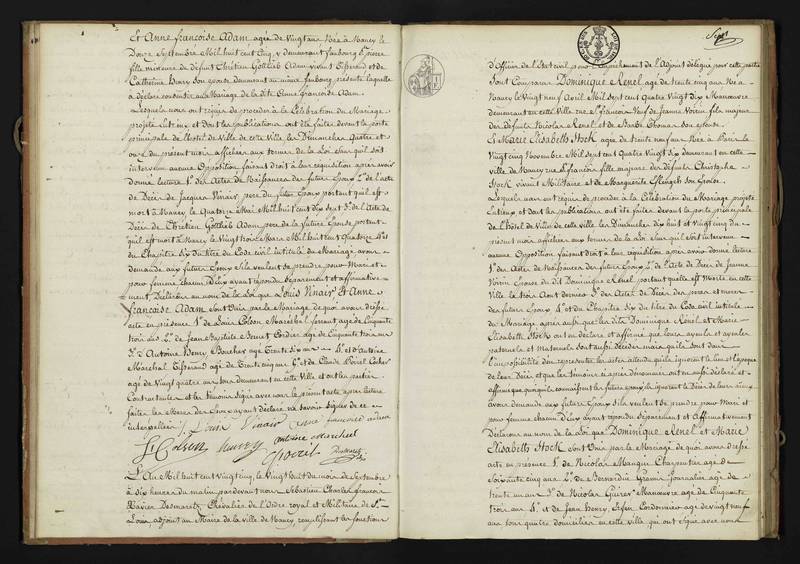 Et Anne françoise Adam agée de vingt ans Née à Nancy le
Douze Septembre Mil huit cent Cinq, y demeurant faubourg St pierre
fille mineure de défunt Chrétien Gottlieb Adam vivant Tisserand et de
Catherine Henry son épouse demeurant au même faubourg, présente laquelle
a déclaré consentir au Mariage de la dite Anne françoise Adam.
Lesquels nous ont requis de procéder à la Célébration du Mariage
projetté entr'eux et dont les publications ont été faites devant la porte
principale de l'hôtel de Ville de cette ville, les Dimanches Quatre et
onze du présent mois affichées aux termes de la Loi sans qu'il soit
intervenu aucune Opposition faisant droit à leur réquisition après avoir
donné lecture 1° des Actes de Naissances des futurs Epoux 2° de l'acte
de Décès de Jacques Vinair père du futur Epoux portant qu'il est
mort à Nancy le Quatorze Mai Mil huit cent dix sept 3° de l'Acte de
Décès de Chrétien Gottlieb Adam père de la future Epouse portant
qu'il est mort à Nancy le vingt trois Mars Mil huit cent Quatorze 4° et
du Chapitre six du titre du Code civil intitulé du Mariage avons
demandé aux futurs Epoux s'ils veulent se prendre pour Mari et
pour femme chacun d'eux ayant répondu séparément et affirmative
ment, Déclarons au nom de la Loi que Louis Vinair et Anne
françoise Adam sont Unis par le Mariage de quoi avons dressé
acte en présence 1° de Louis Colson Maréchal ferrant agé de Cinquante
trois ans 2° de Jean Baptiste Cordier agé de Cinquante trois ans
3° Antoine Henry, Boucher agé Trente Six ans 4° et d'Antoine
Maréchal Tisserand agé de Trente cinq ans et de Claude
agé de vingt quatre ans tous demeurant en cette Ville et ont les parties
Contractantes et les témoins signé avec nous le présent acte après lecture
faite, les Mères des Epoux ayant déclaré ne savoir Signer de ce
interpellées. Louis Vinair Anne françoise adam
Colson henry antoine marchal
L'An Mil huit cent Vingt Cinq, le Vingt huit du mois de Septembre
à dix heures du matin par devant nous Sébastien Charles françois
Xavier Desmaretz, Chevalier de l'Ordre royal et Militaire de St
Louis, adjoint au Maire de la ville de Nancy, remplissant les fonctions
Sept
d'Officier de l'Etat civil pour l'empêchement de l'Adjoint délégué pour cette partie
Sont Comparus Dominique Renel agé de trente cinq ans Né à
Nancy le vingt neuf Avril Mil sept cent Quatre Vingt dix Manœuvre
demeurant en cette Ville rue St francois Veuf de Jeanne Voirin fils majeur
des défunts Nicolas Renel et de Barbe Thomas son épouse.
Et Marie Elisabeth Hock agée de trente ans Née à Paris le
vingt cinq Novembre Mil sept cent Quatre Vingt dix demeurant en cette
ville de Nancy rue St francois fille majeure des défunts Christophe
Hock vivant Militaire et de Marguerite son Epouse.
Lesquels nous ont requis de procéder à la Célébration du Mariage projetté
entr'eux et dont les publications ont été faites devant la porte principale
de l'hôtel de Ville de cette ville, les Dimanches dix huit et vingt cinq du
présent mois affichées aux termes de la Loi sans qu'il soit intervenu
aucune Opposition faisant droit à leur réquisition après avoir donné lecture
1° des Actes de Naissances des futurs Epoux 2° de l'Acte de Décès de Jeanne
Voirin Epouse du dit Dominique Renel portant qu'elle est Morte en cette
Ville le trois Aout dernier 3° des Actes de Décès des père et mère
du futur Epoux 4° et du Chapitre Six du titre du Code civil intitulé
du Mariage après aussi que les dits Dominique Renel et Marie
Elisabeth Hock ont déclaré et affirmé que leurs ayeuls et ayeules
paternels et maternels sont aussi décédés mais qu'ils sont dans
l'impossibilité d'en représenter les actes attendu qu'ils ignorent le lieu et l'époque
de leur Décès, et que les témoins ci après dénommés ont aussi déclaré et
affirmé que quoiqu'ils connaissent les futurs époux ils ignorent le Décès de leurs aïeux
avons demandé aux futurs Epoux s'ils veulent se prendre pour Mari et
pour femme chacun d'eux ayant répondu séparément et Affirmativement
Déclarons au nom de la Loi que Dominique Renel et Marie
Elisabeth Hock sont Unis par le Mariage de quoi avons dressé
acte en présence 1° de Nicolas Mangin Charpentier agé de
Soixante cinq ans 2° de Bernardin journalier agé de
trente un ans 3° de Nicolas Manœuvre agé de Cinquante
trois ans 4° et de Jean Henry Cordonnier agé de vingt neuf
ans tous quatre domiciliés en cette ville qui ont signé avec nous